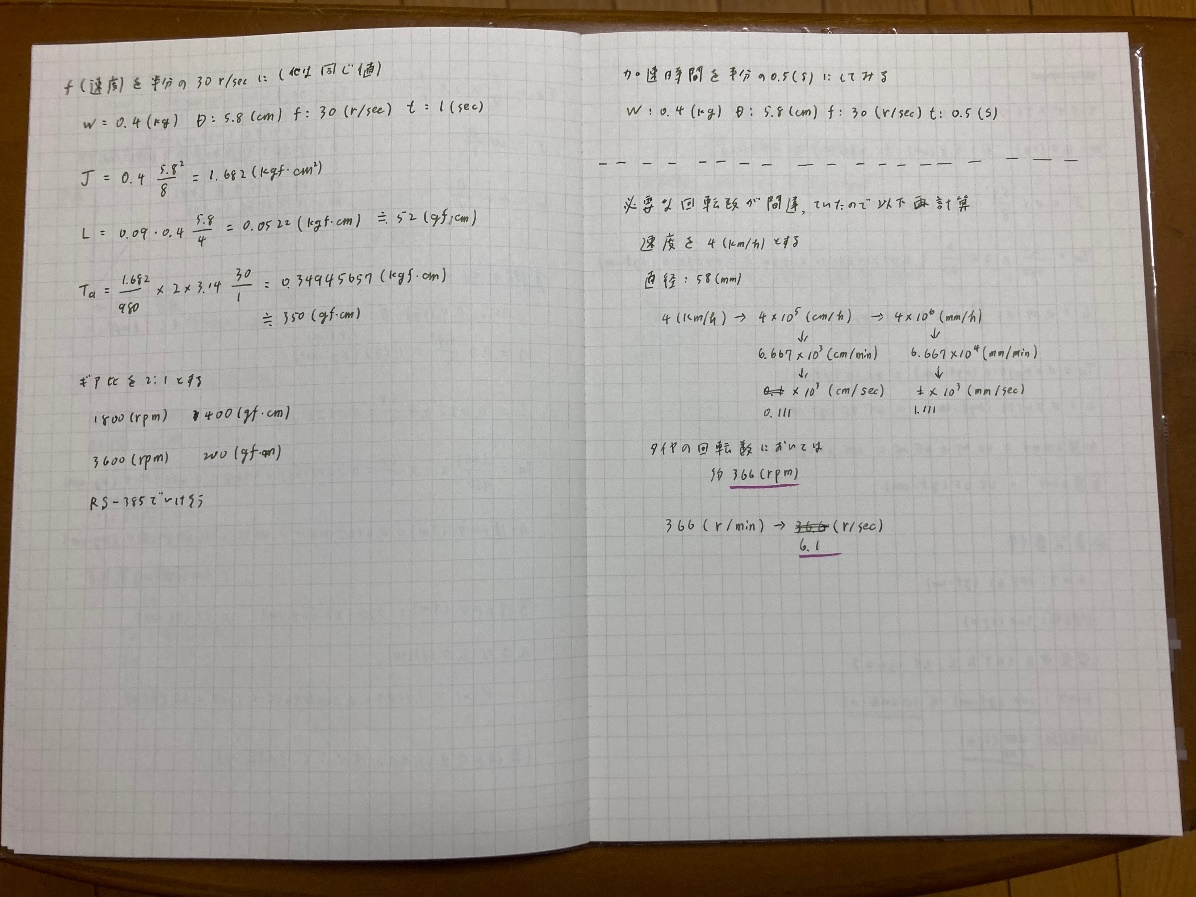 f(速度)を半分の30 r/secに(他は同じ値)
W = 0.4(kg) D: 5.8(cm) f: 30(r/sec) t = 1(sec)
J = 0.4 5.8²/8 = 1.682(kgf·cm²)
L = 0.09·0.4 5.8/4 = 0.0522(kgf·cm) ≒ 52(gf·cm)
Ta = 1.682/980 × 2 × 3.14 30/1 = 0.34945657(kgf·cm)
≒ 350(gf·cm)
ギア比を2:1とする
1800(rpm) 400(gf·cm)
3600(rpm) 200(gf·cm)
RS-385でいけそう
加速時間を半分の0.5(s)にしてみる
W: 0.4(kg) D: 5.8(cm) f: 30(r/sec) t: 0.5(s)
必要な回転数が間違っていたので以下再計算
速度を4(km/h)とする
直径: 58(mm)
4(km/h) → 4×10⁵(cm/h) → 4×10⁶(mm/h)
↓ ↓
6.667×10³(cm/min) 6.667×10⁴(mm/min)
↓ ↓
×10³(cm/sec) ×10³(mm/sec)
0.111 1.111
タイヤの回転数においては
約366(rpm)
366(r/min) → 36.6(r/sec)
6.1